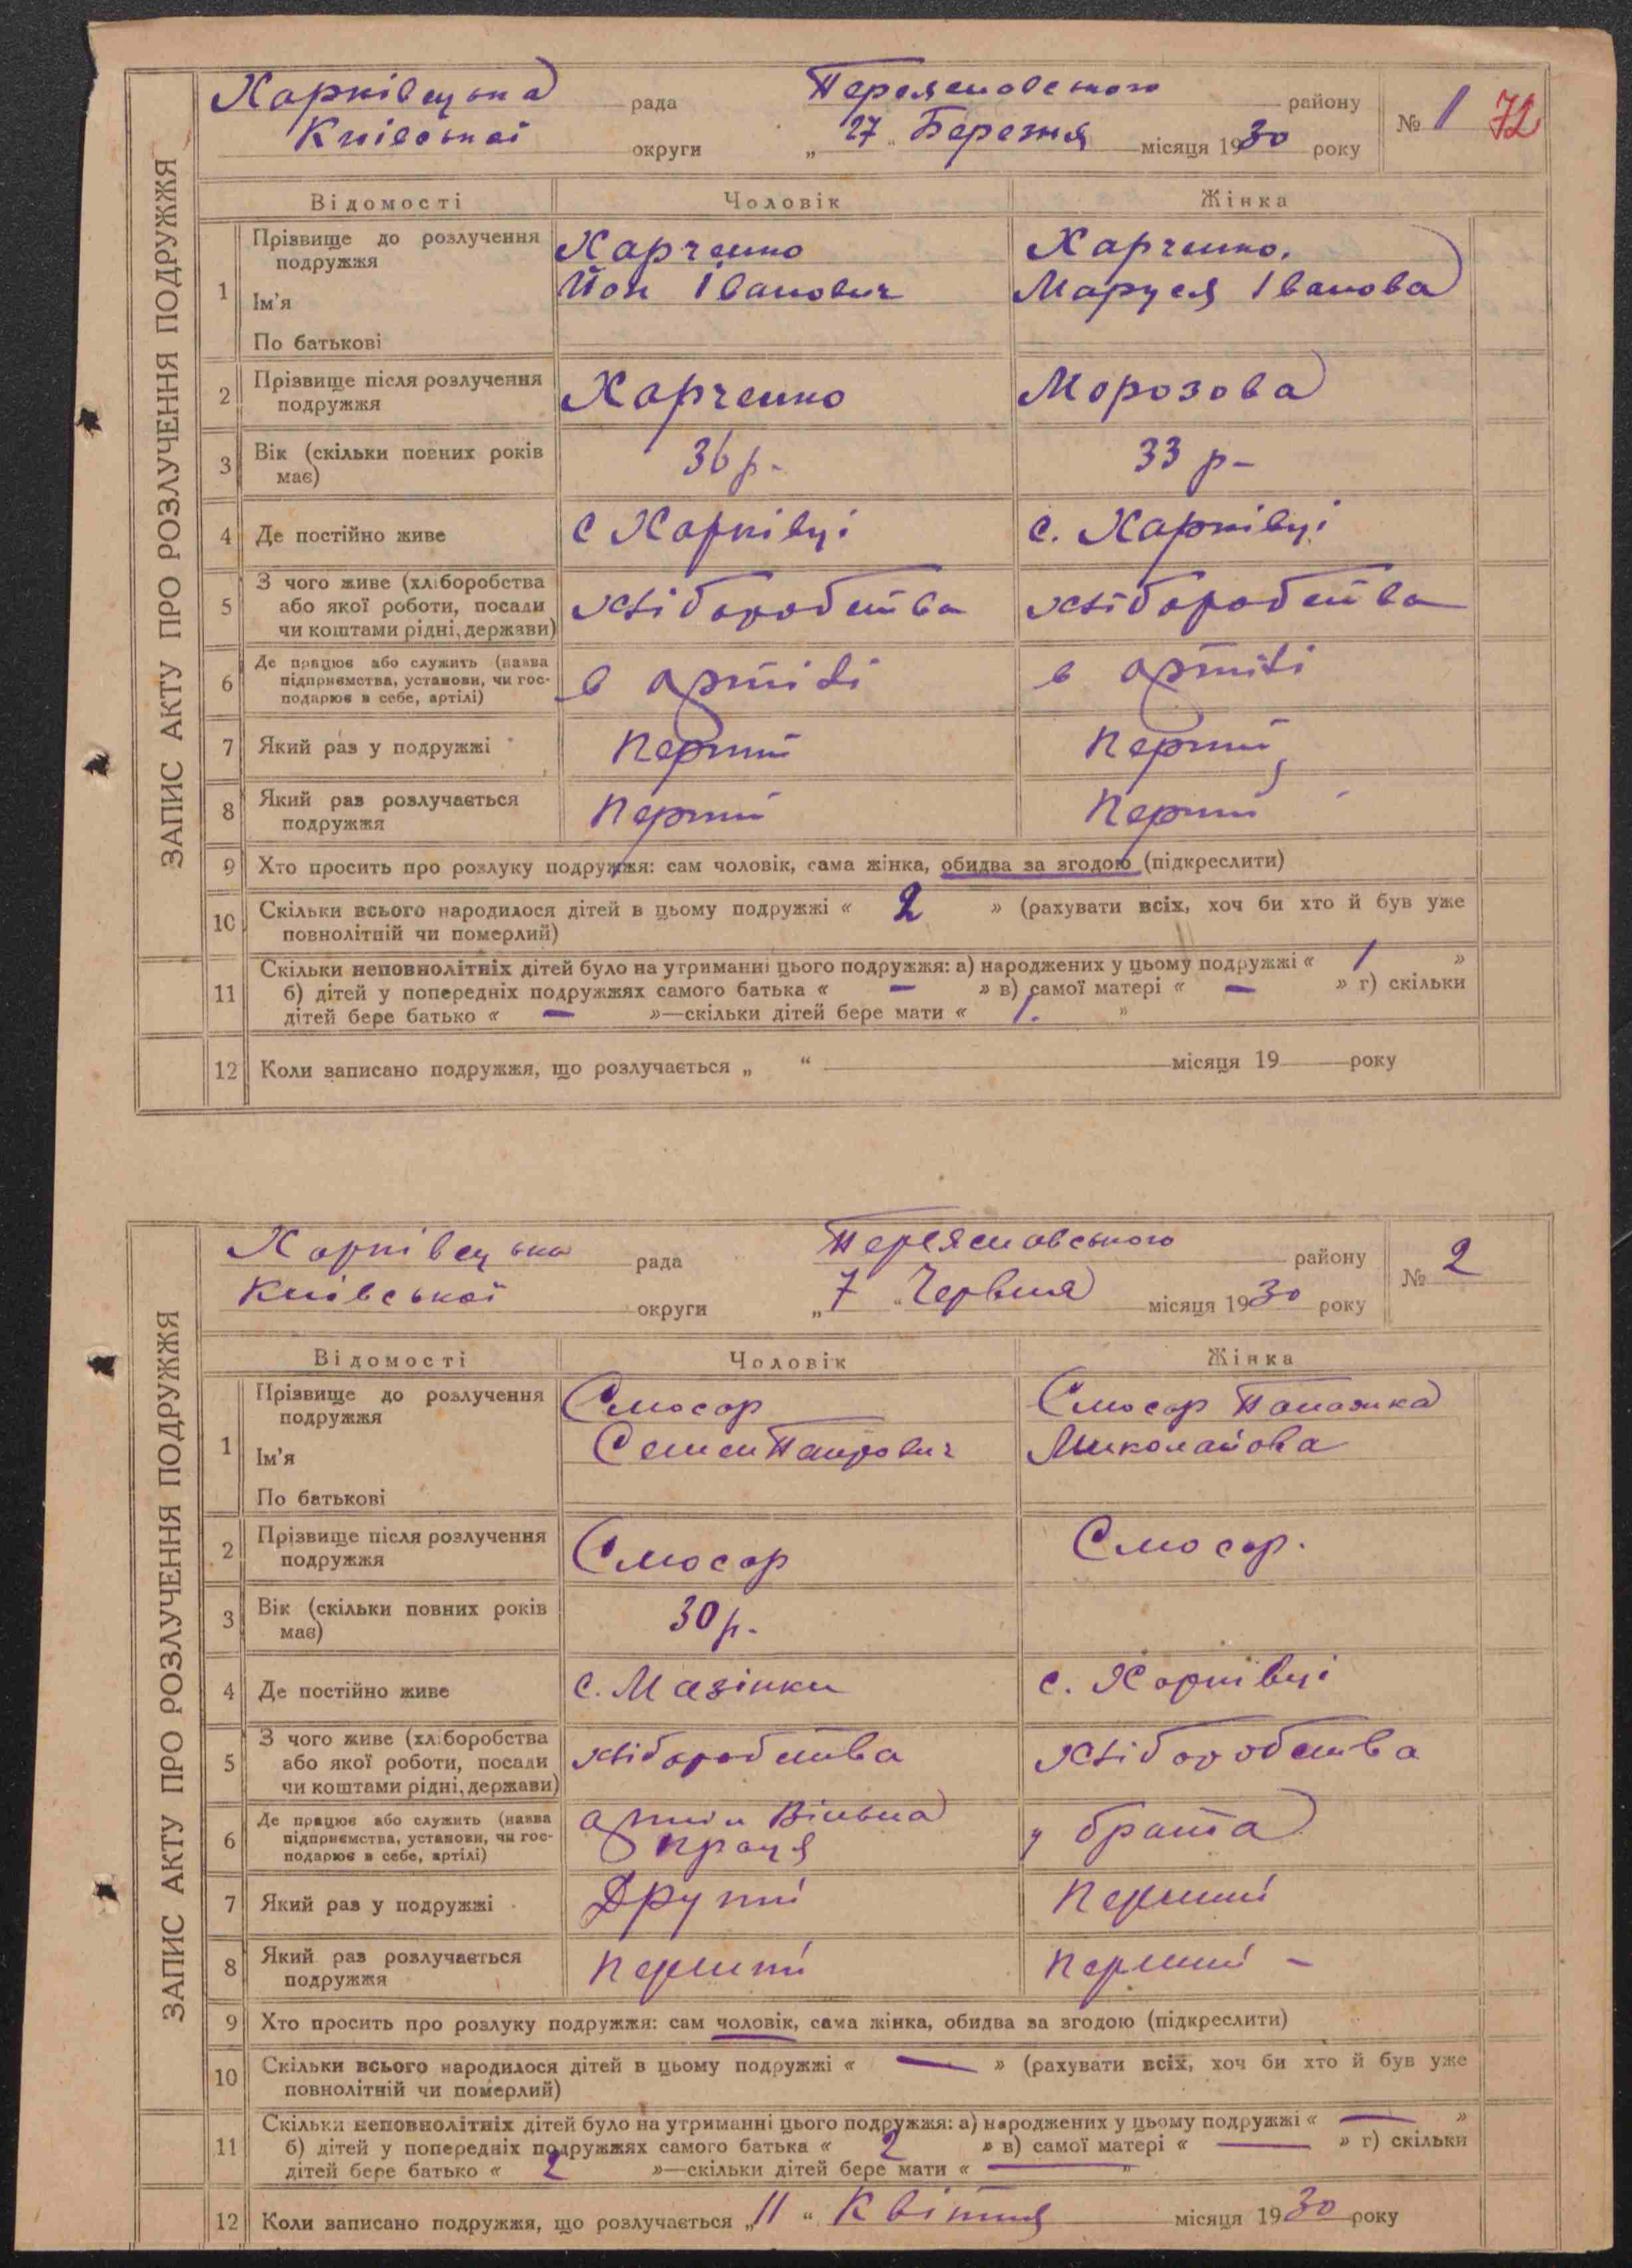 ЗАПИС АКТУ ПРО РОЗЛУЧЕННЯ ПОДРУЖЖЯ
Харківецька рада Переяславського району № 1 72
Київської округи „27“ Березня місяця 1930 року
Відомості Чоловік Жінка
1 Прізвище до розлучення подружжя Харченко Харченко.
Ім'я Йон Іванович Маруся Іванова
По батькові
2 Прізвище після розлучення подружжя Харченко Морозова
3 Вік (скільки повних років має) 36 р- 33 р-
4 Де постійно живе с Харківці с. Харківці
5 З чого живе (хліборобства або якої роботи, посади чи коштами рідні, держави) хліборобства хліборобства
6 Де працює або служить (назва підприємства, установи, чи господарює в себе, артілі) в артілі в артілі
7 Який раз у подружжі Перший Перший
8 Який раз розлучається подружжя Перший Перший
9 Хто просить про розлуку подружжя: сам чоловік, сама жінка, обидва за згодою (підкреслити)
10 Скільки всього народилося дітей в цьому подружжі « 2 » (рахувати всіх, хоч би хто й був уже
повнолітній чи померлий)
11 Скільки неповнолітніх дітей було на утриманні цього подружжя: а) народжених у цьому подружжі « 1 »
б) дітей у попередніх подружжях самого батька « — » в) самої матері « — » г) скільки
дітей бере батько « — »—скільки дітей бере мати « 1. »
12 Коли записано подружжя, що розлучається „ “ місяця 19 року
ЗАПИС АКТУ ПРО РОЗЛУЧЕННЯ ПОДРУЖЖЯ
Харківецька рада Переяславського району № 2
Київської округи „7“ Червня місяця 1930 року
Відомості Чоловік Жінка
1 Прізвище до розлучення подружжя Слюсар Слюсар
Ім'я Семен Миколайова
По батькові
2 Прізвище після розлучення подружжя Слюсар Слюсар.
3 Вік (скільки повних років має) 30 р.
4 Де постійно живе с. Мазінки с. Харківці
5 З чого живе (хліборобства або якої роботи, посади чи коштами рідні, держави) хліборобства хліборобства
6 Де працює або служить (назва підприємства, установи, чи господарює в себе, артілі) Вільна праця у брата
7 Який раз у подружжі Другий Перший
8 Який раз розлучається подружжя Перший Перший —
9 Хто просить про розлуку подружжя: сам чоловік, сама жінка, обидва за згодою (підкреслити)
10 Скільки всього народилося дітей в цьому подружжі « — » (рахувати всіх, хоч би хто й був уже
повнолітній чи померлий)
11 Скільки неповнолітніх дітей було на утриманні цього подружжя: а) народжених у цьому подружжі « — »
б) дітей у попередніх подружжях самого батька « 2 » в) самої матері « — » г) скільки
дітей бере батько « 2 »—скільки дітей бере мати « — »
12 Коли записано подружжя, що розлучається „11“ Квітня місяця 1930 року